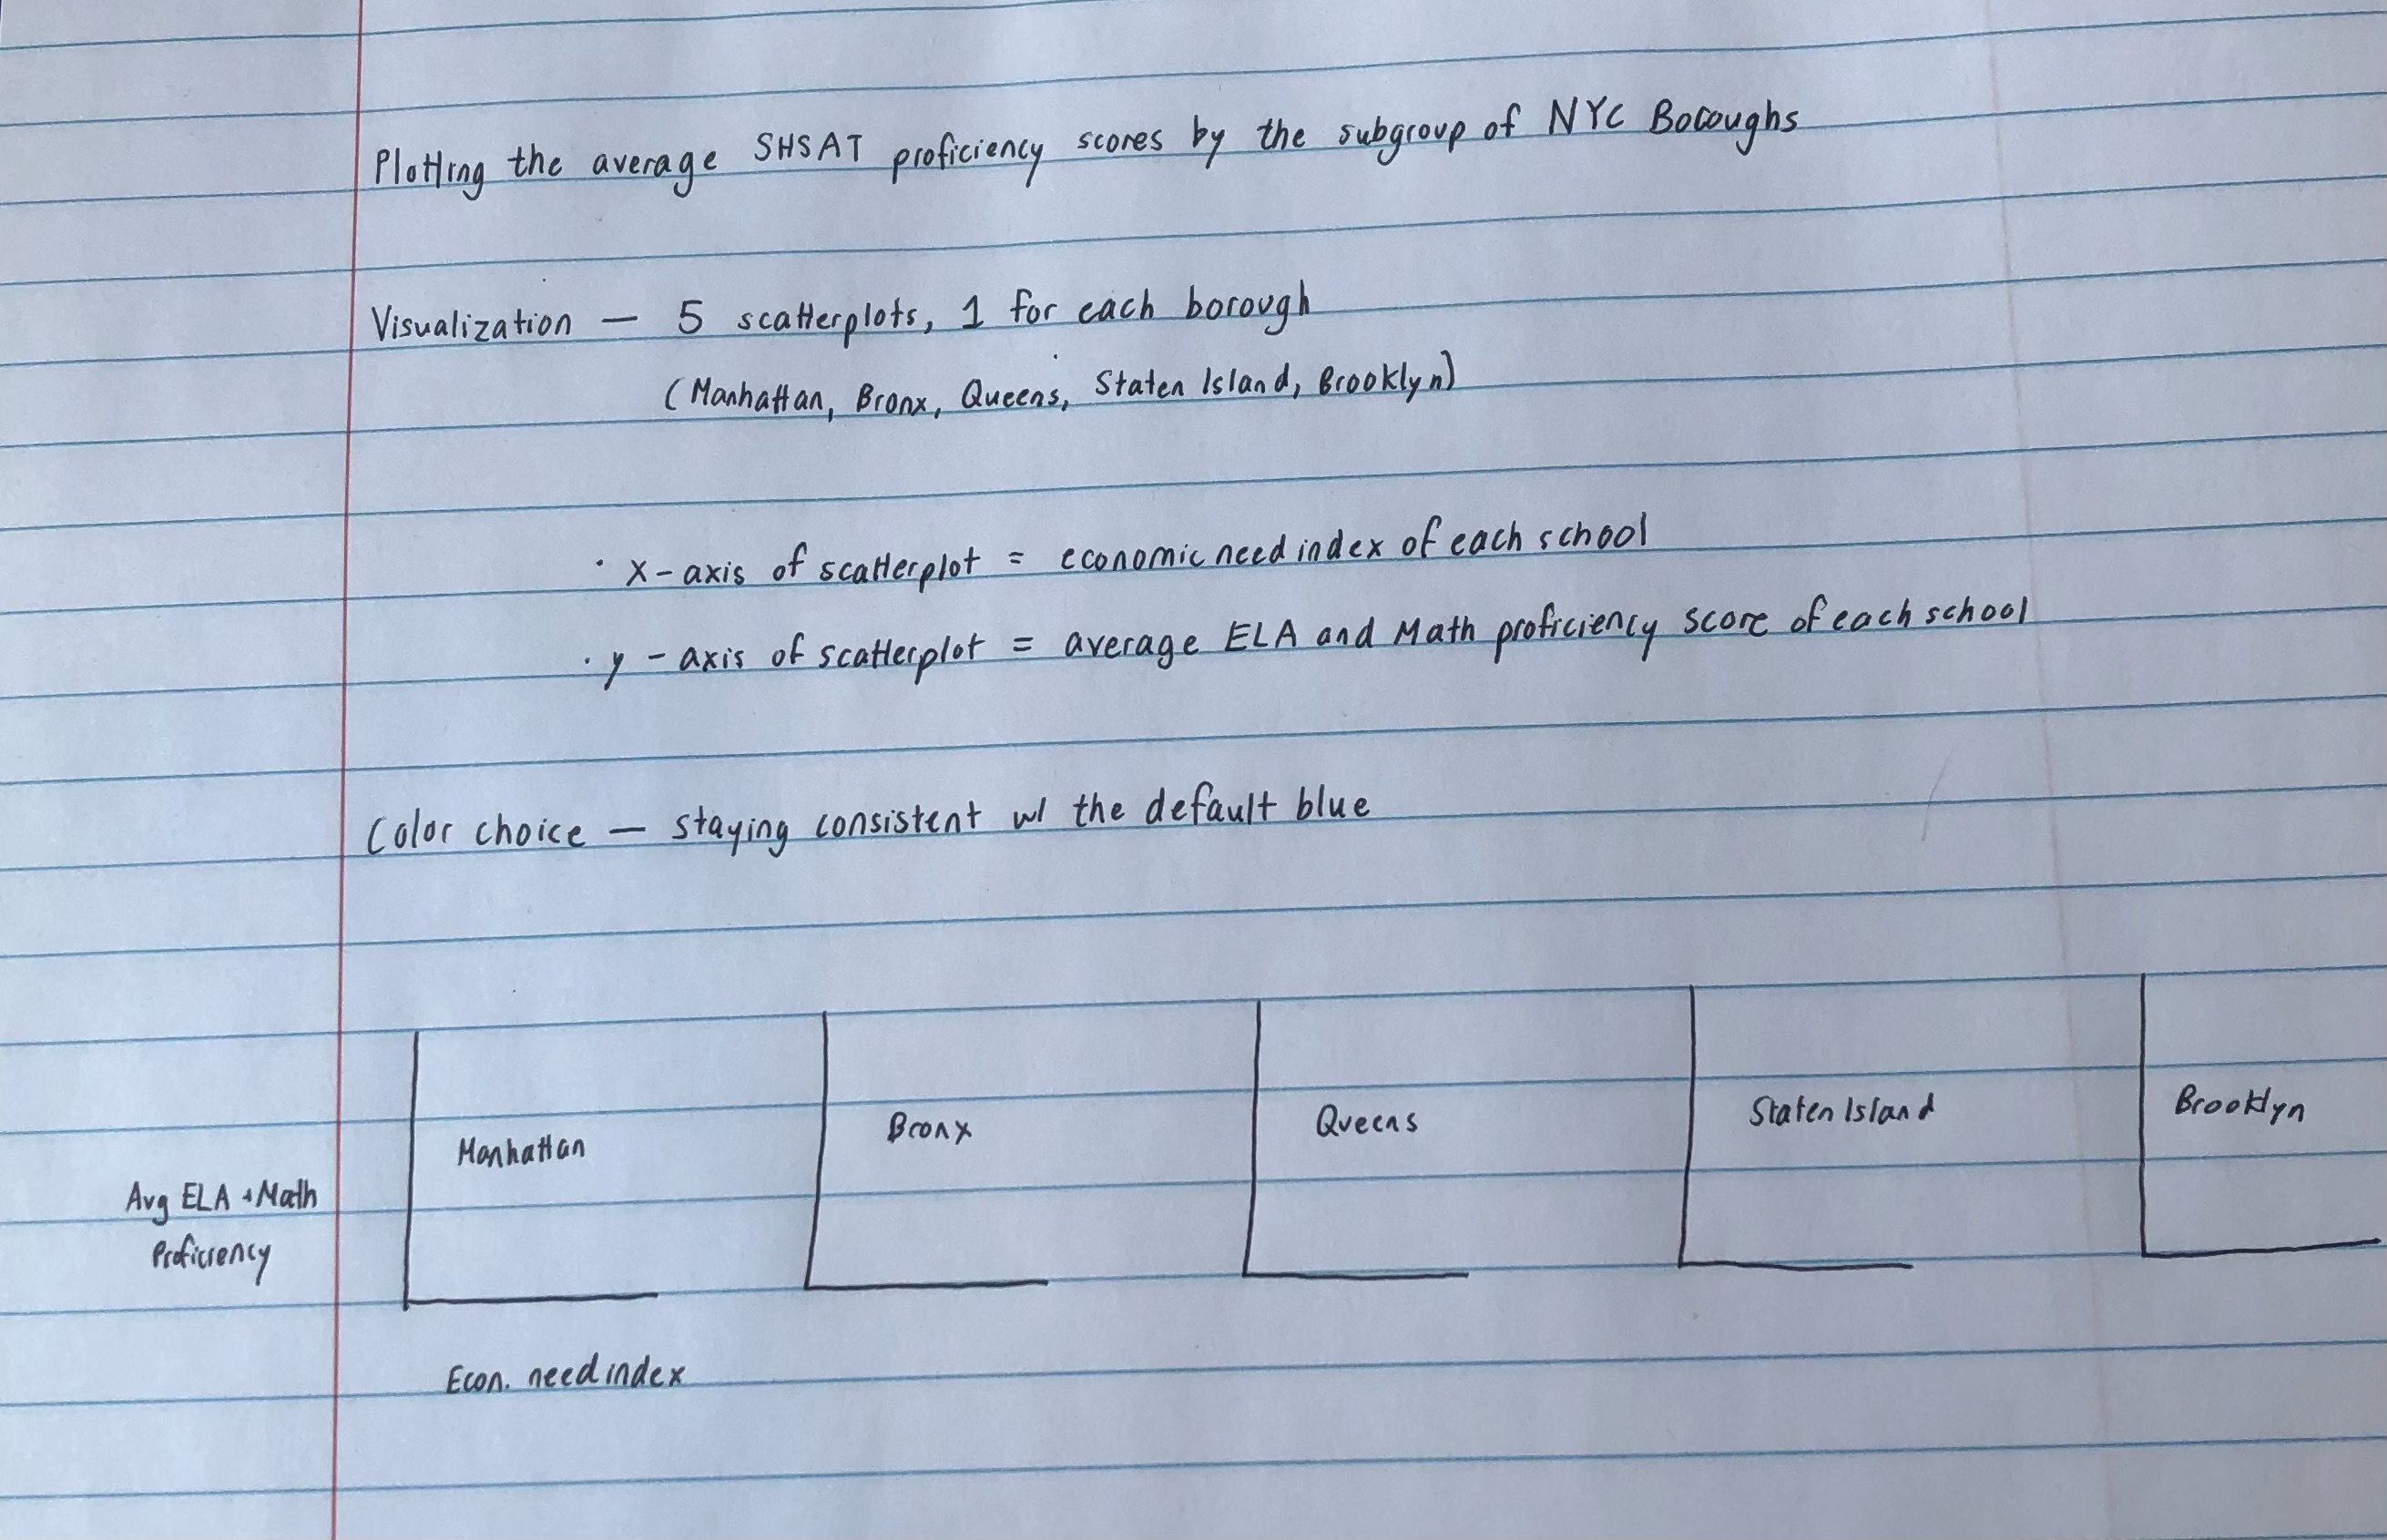 Plotting the average SHSAT proficiency scores by the subgroup of NYC Boroughs
Visualization — 5 scatterplots, 1 for each borough
(Manhattan, Bronx, Queens, Staten Island, Brooklyn)
· x-axis of scatterplot = economic need index of each school
· y-axis of scatterplot = average ELA and Math proficiency score of each school
Color choice — staying consistent w/ the default blue
Manhattan
Bronx
Queens
Staten Island
Brooklyn
Avg ELA + Math
Proficiency
Econ. need index